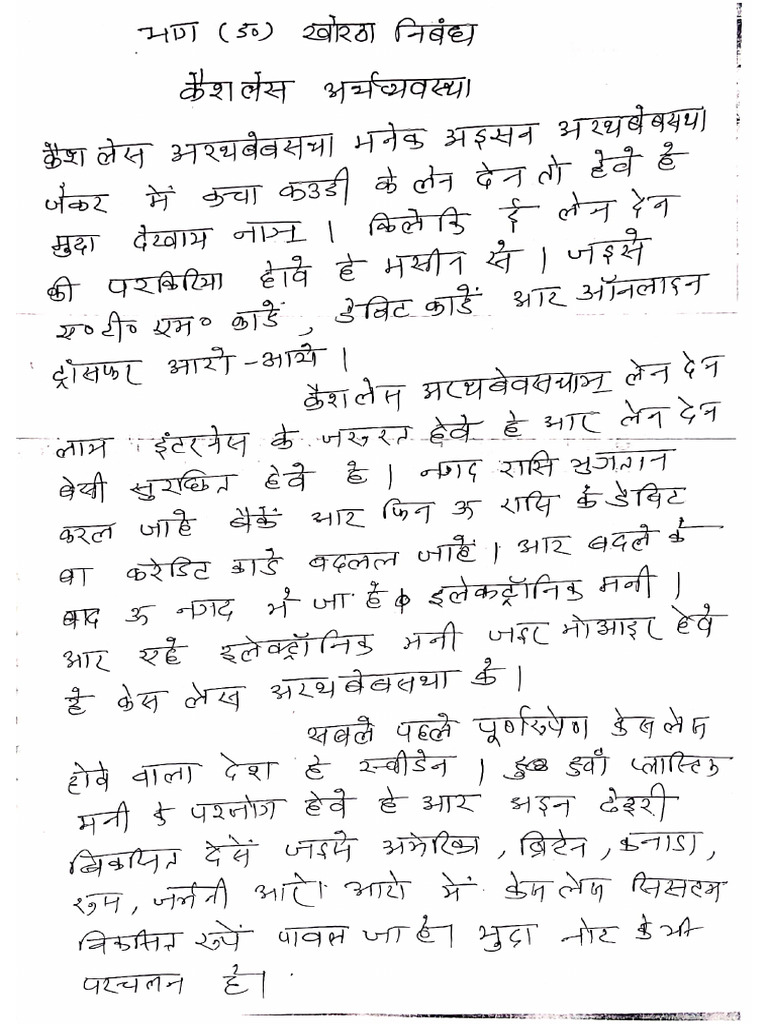 भाग (ड०) खोरठा निबंध
कैशलेस अर्थव्यवस्था
कैशलेस अरथबेबसथा मनेक अइसन अरथबेबसथा
जेकर में कचा कउडी के लेन देन तो हेवे हे
मुद्रा देखाय नाञ । किलेकि ई लेन देन
की परकिरिया होवे हे मसीन से । जइसे
ए० टी० एम० कार्ड , डेबिट कार्ड आर ऑनलाइन
ट्रांसफर आरो-आरो ।
कैशलेस अरथबेवसथाञ लेन देन
लाय इंटरनेस के जरुरत हेवे हे आर लेन देन
बेसी सुरछित हेवे हे । नगद रासि भुगतान
करल जाहे बैकें आर फिन ऊ रासि के डेबिट
वा करेडिट कार्ड बदलल जाहे । आर बदले के
बाद ऊ नगद भे जा हे इलेकट्रॉनिक मनी ।
आर एहे इलेक्ट्रॉनिक मनी जइर मोआइर हेवे
हे केस लेस अरथबेबसथा के ।
सबले पहले पूर्णरुपेण केसलेस
होवे वाला देश हे स्वीडेन । हुवाँ प्लास्टिक
मनी के परजोग हेवे हे आर अइन ढेइरी
बिकसित देसें जइसे अमेरिका , ब्रिटेन , कनाडा ,
रुस , जर्मनी आरो आरो में केसलेस सिसटम
बिकसित रुपें पावल जा हे। मुद्रा नोट के भी
परचलन हे ।